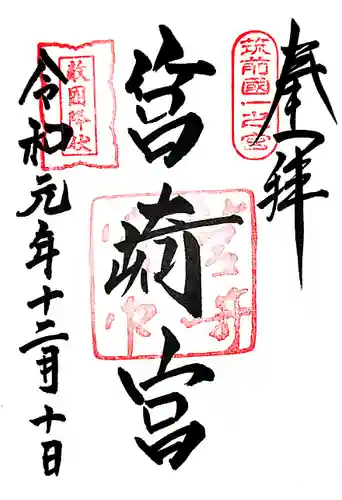 奉拝
筑前國一之宮
筥崎宮
敵国降伏
令和元年十二月十日